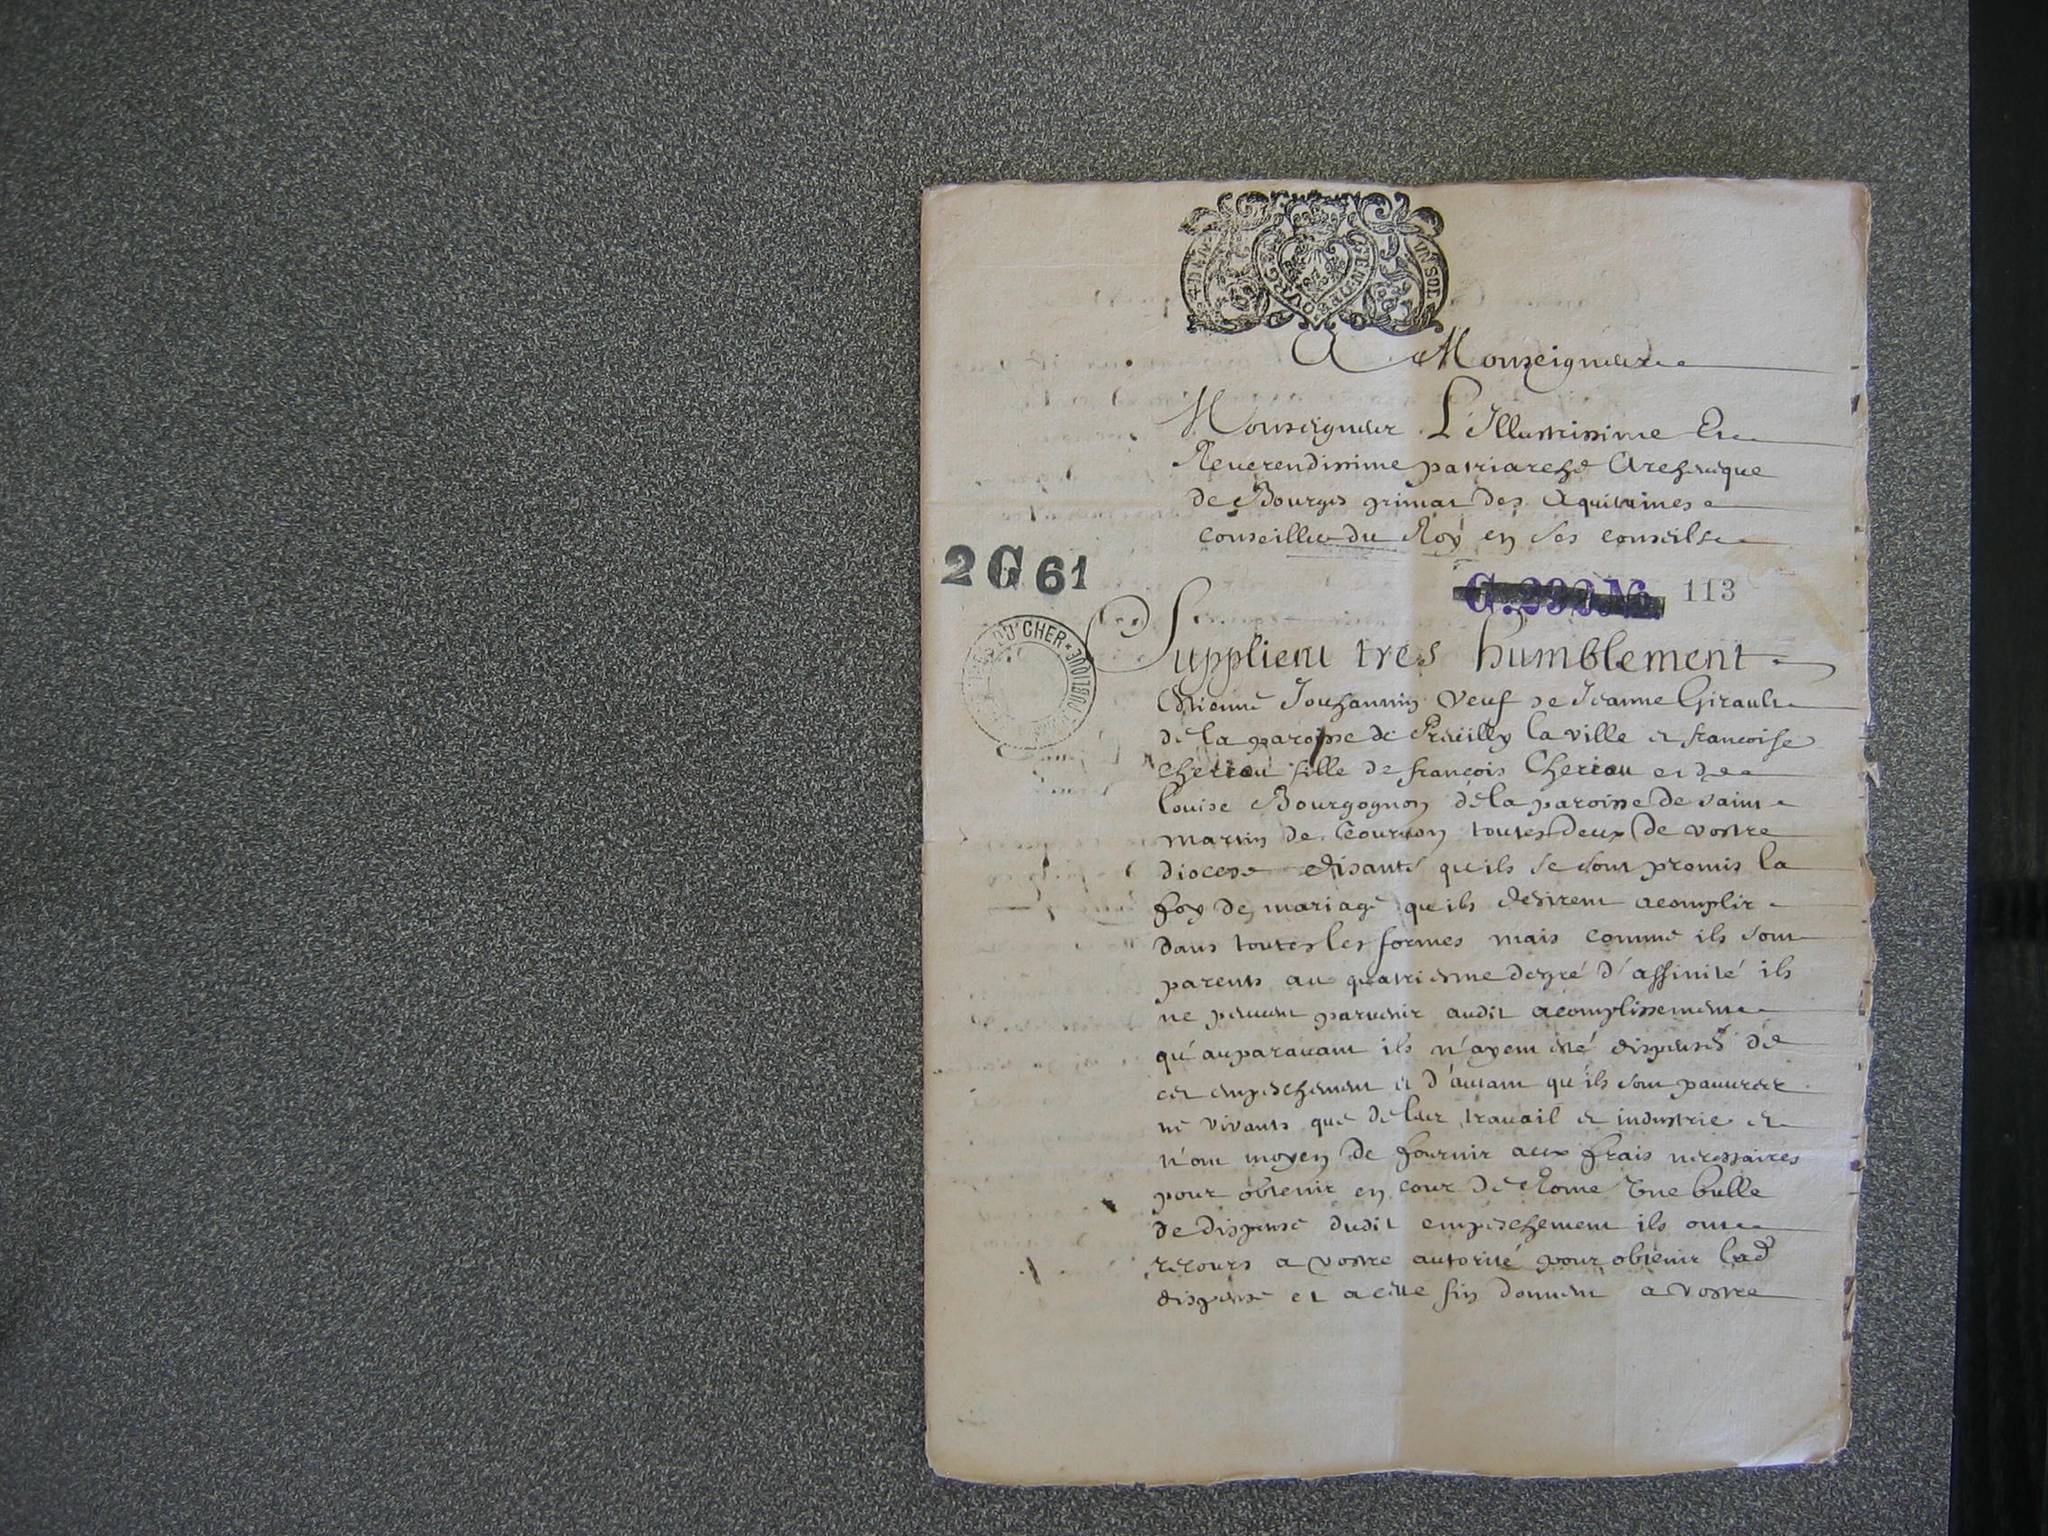 UN SOL
GEN DE BOURGES
A Monseigneur
Monseigneur L'Illustrissime Et
Reuerendissime patriarche Archeuesque
de Bourges primat des Aquitaines
Conseiller du Roy en ses conseils
2 G 61
G. 292 No 113
DU CHER
Supplient tres humblement
Estienne Jouhannin Veuf de Jeanne Girault
de la paroisse de Preüilly la ville et francoise
Cheriou fille de françois Cheriou et de
louise Bourgognon de la paroisse de saint
martin de Tournon toutes deux de vostre
diocese disants qu'ils se sont promis la
foy de mariage qu'ils desirent acomplir
dans toutes les formes mais comme ils sont
parents au quatriesme degré d'affinité ils
ne peuuent paruenir audit acomplissement
qu'auparauant ils n'ayent esté dispensés de
cet empeschement et d'autant qu'ils sont pauures
ne vivants que de leur trauail et industrie et
n'ont moyen de fournir aux frais necessaires
pour obtenir en cour de Rome Vne bulle
de dispense dudit empeschement ils ont
recours a vostre autorité pour obtenir lad
dispense et a cette fin donnent a vostre